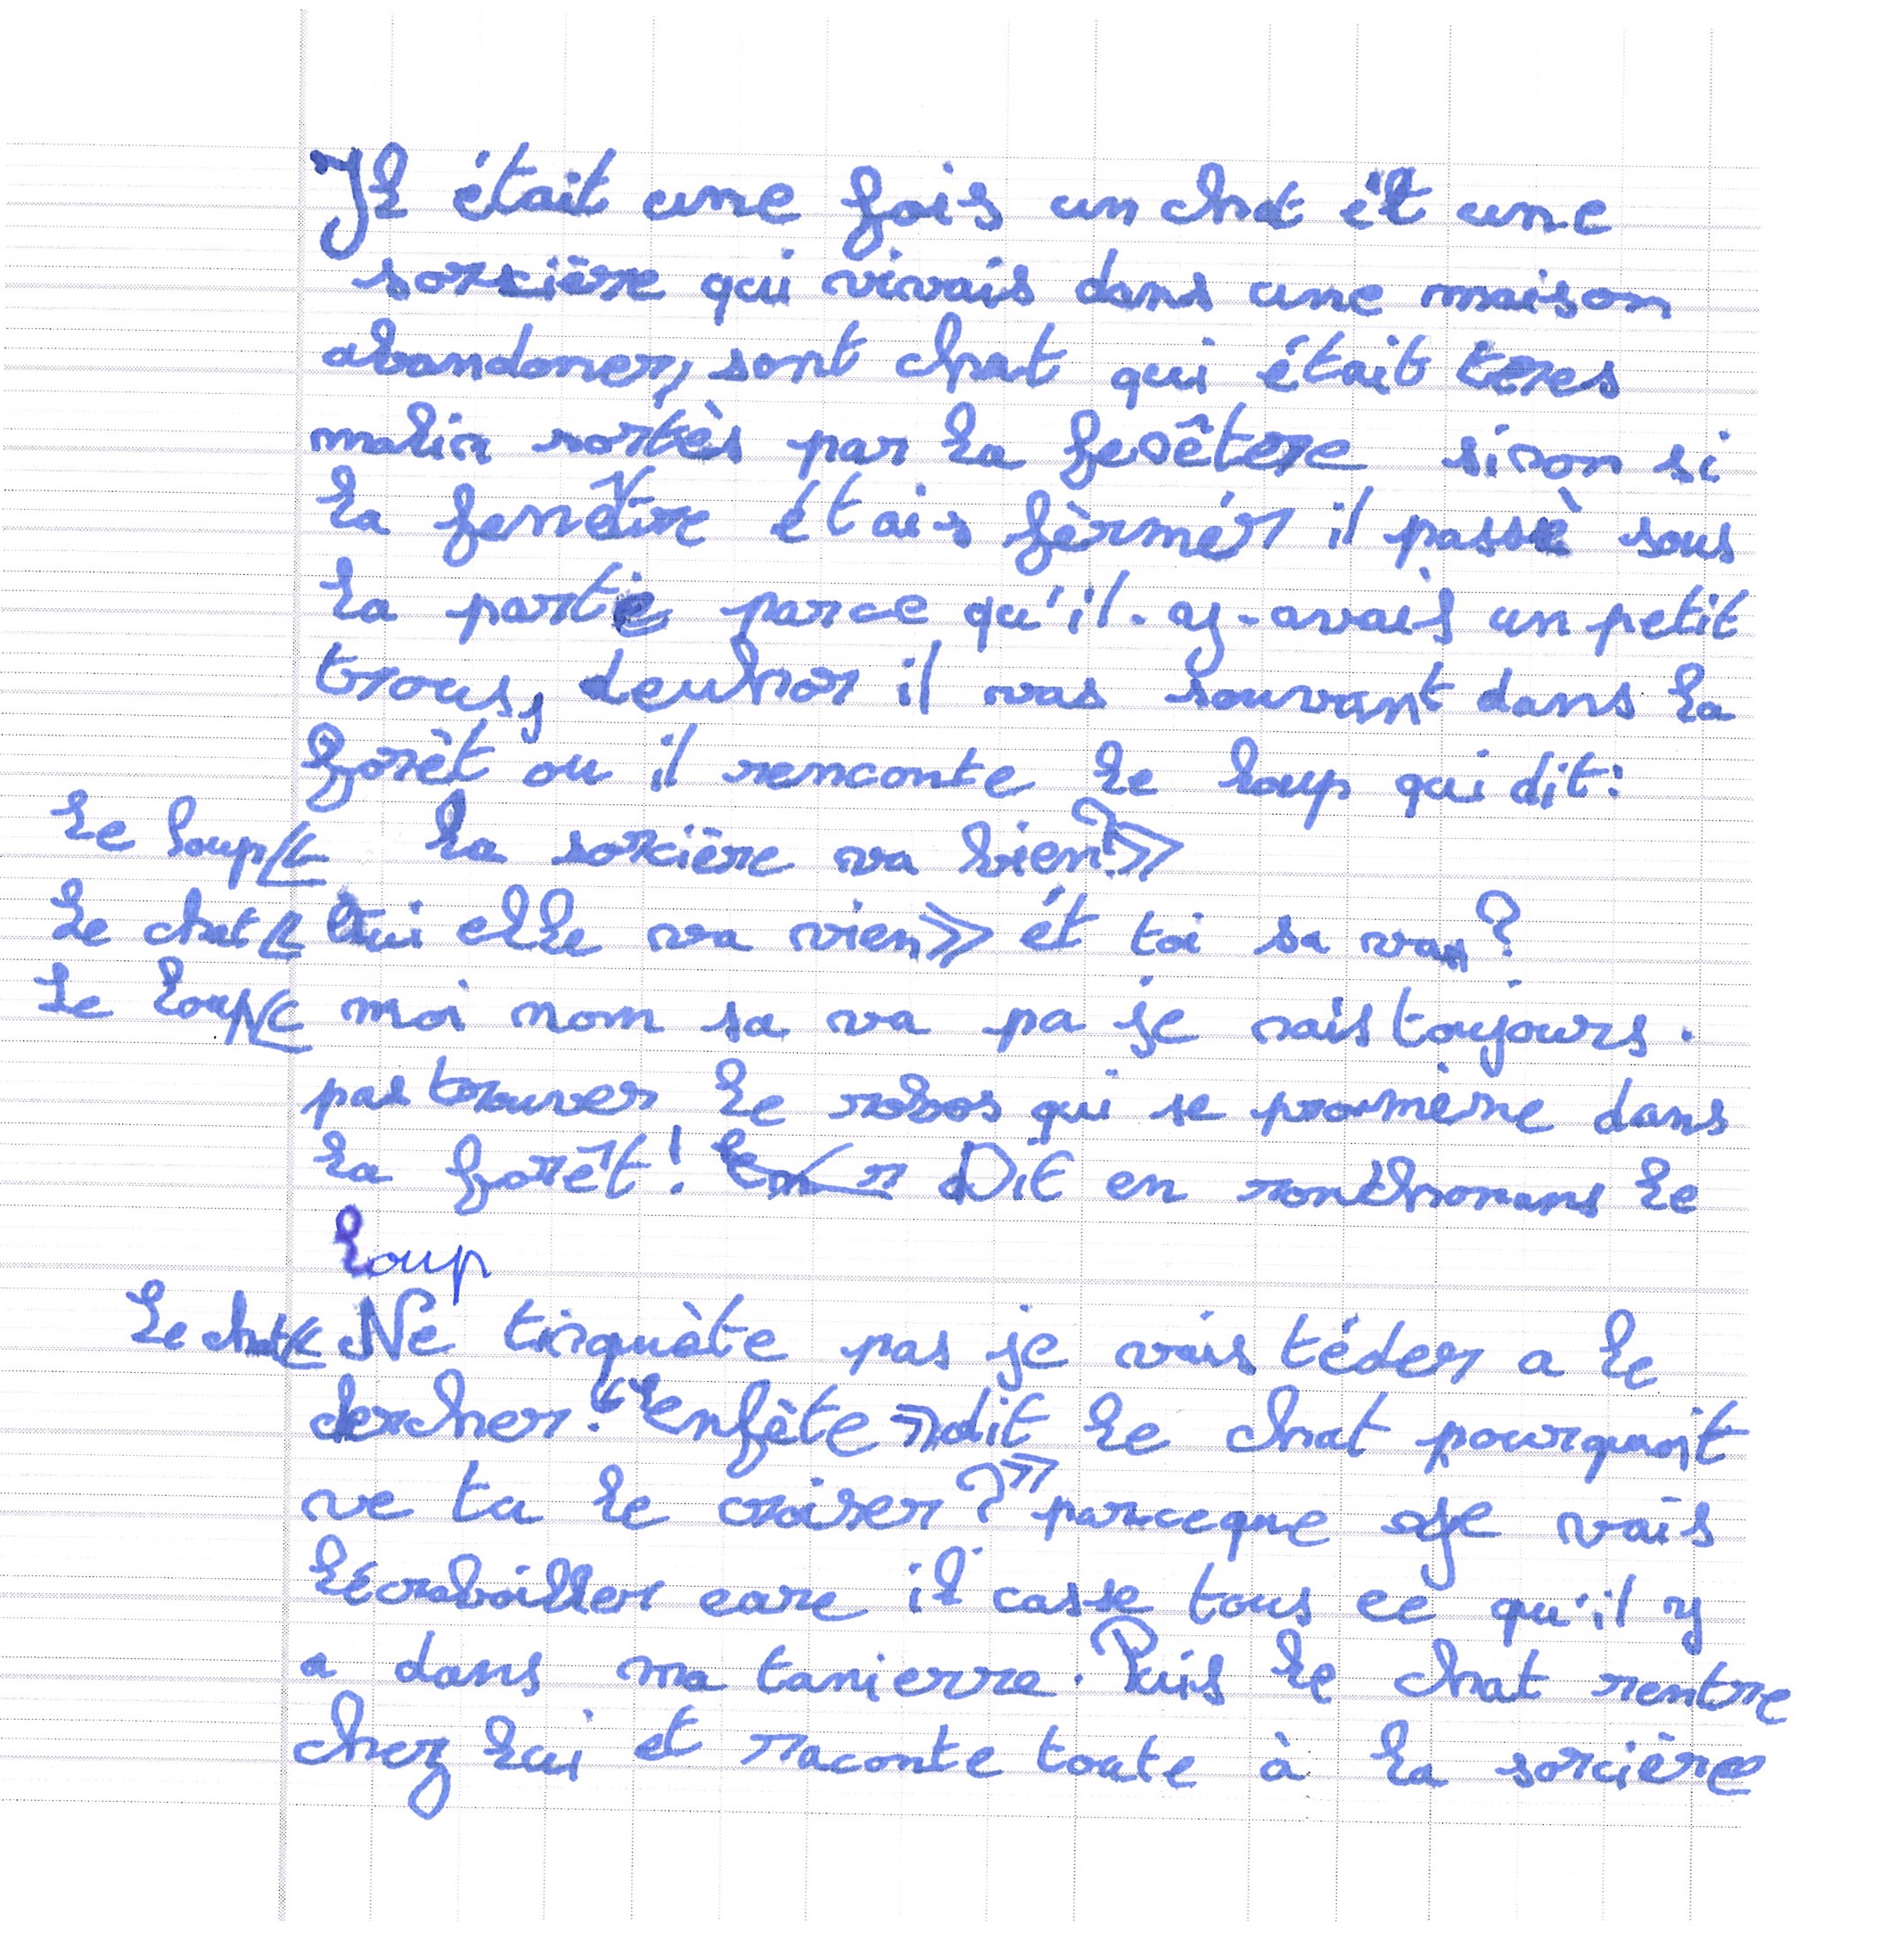 Il était une fois un chat ét une
sorcière qui vivais dans une maison
abandoner, sont chat qui était tres
malin sortès par la fenêtre sinon si
la fenêtre étais fèrmér il passè sous
la parte parce qu'il-ay-avais un petit
trous, deuhor il vas souvant dans la
forêt ou il renconte le loup qui dit:
Le loup « la sorcière va bien? »
Le chat « Oui elle va vien » ét toi sa va ?
Le loup « moi nom sa va pa je nais toujours.
pas trouver le robos qui se promène dans
la forêt! » Dit en ronchonans le
loup
Le chat « Ne tinquète pas je vais téder a le
chercher. "enfète » dit le chat pourquoit
ve tu le croiser ? » parceque je vais
lécraboiller care il casse tous ce qu'il y
a dans ma tanierre. Puis le chat rentre
chez lui et raconte toute à la sorcière